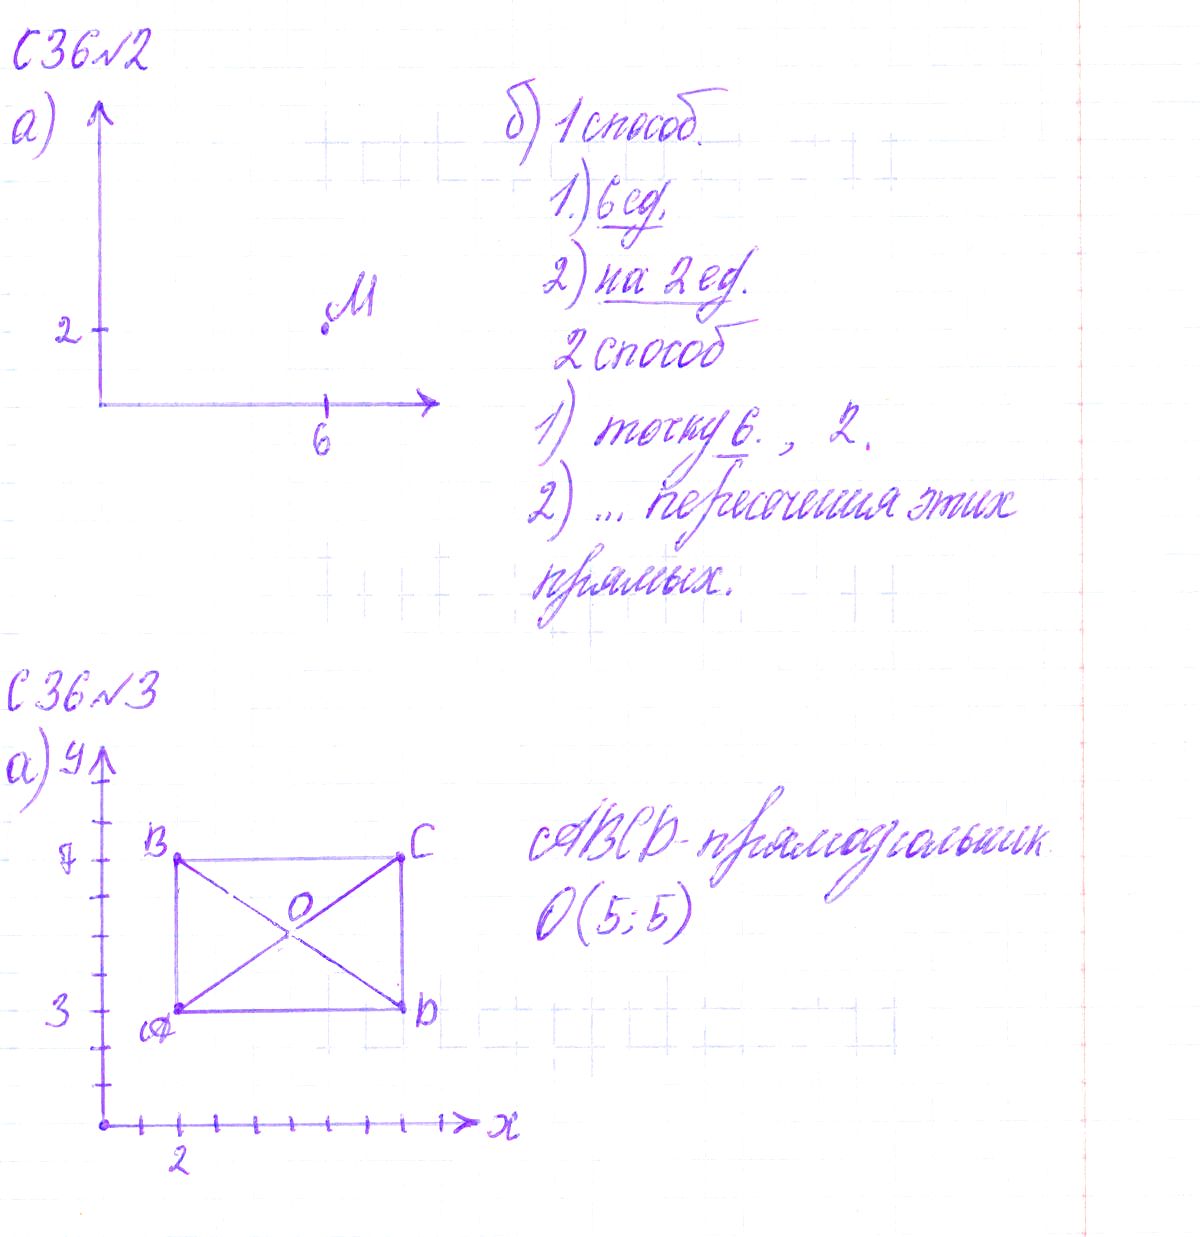 С 36 №2
а)
М
2
6
б) 1 способ.
1.) 6 ед.
2) на 2 ед.
2 способ
1) точку 6. , 2.
2) ... пересечения этих
прямых.
С 36 №3
а) У
B
C
7
O
3
A
D
x
2
ABCD - прямоугольник.
O (5; 5)